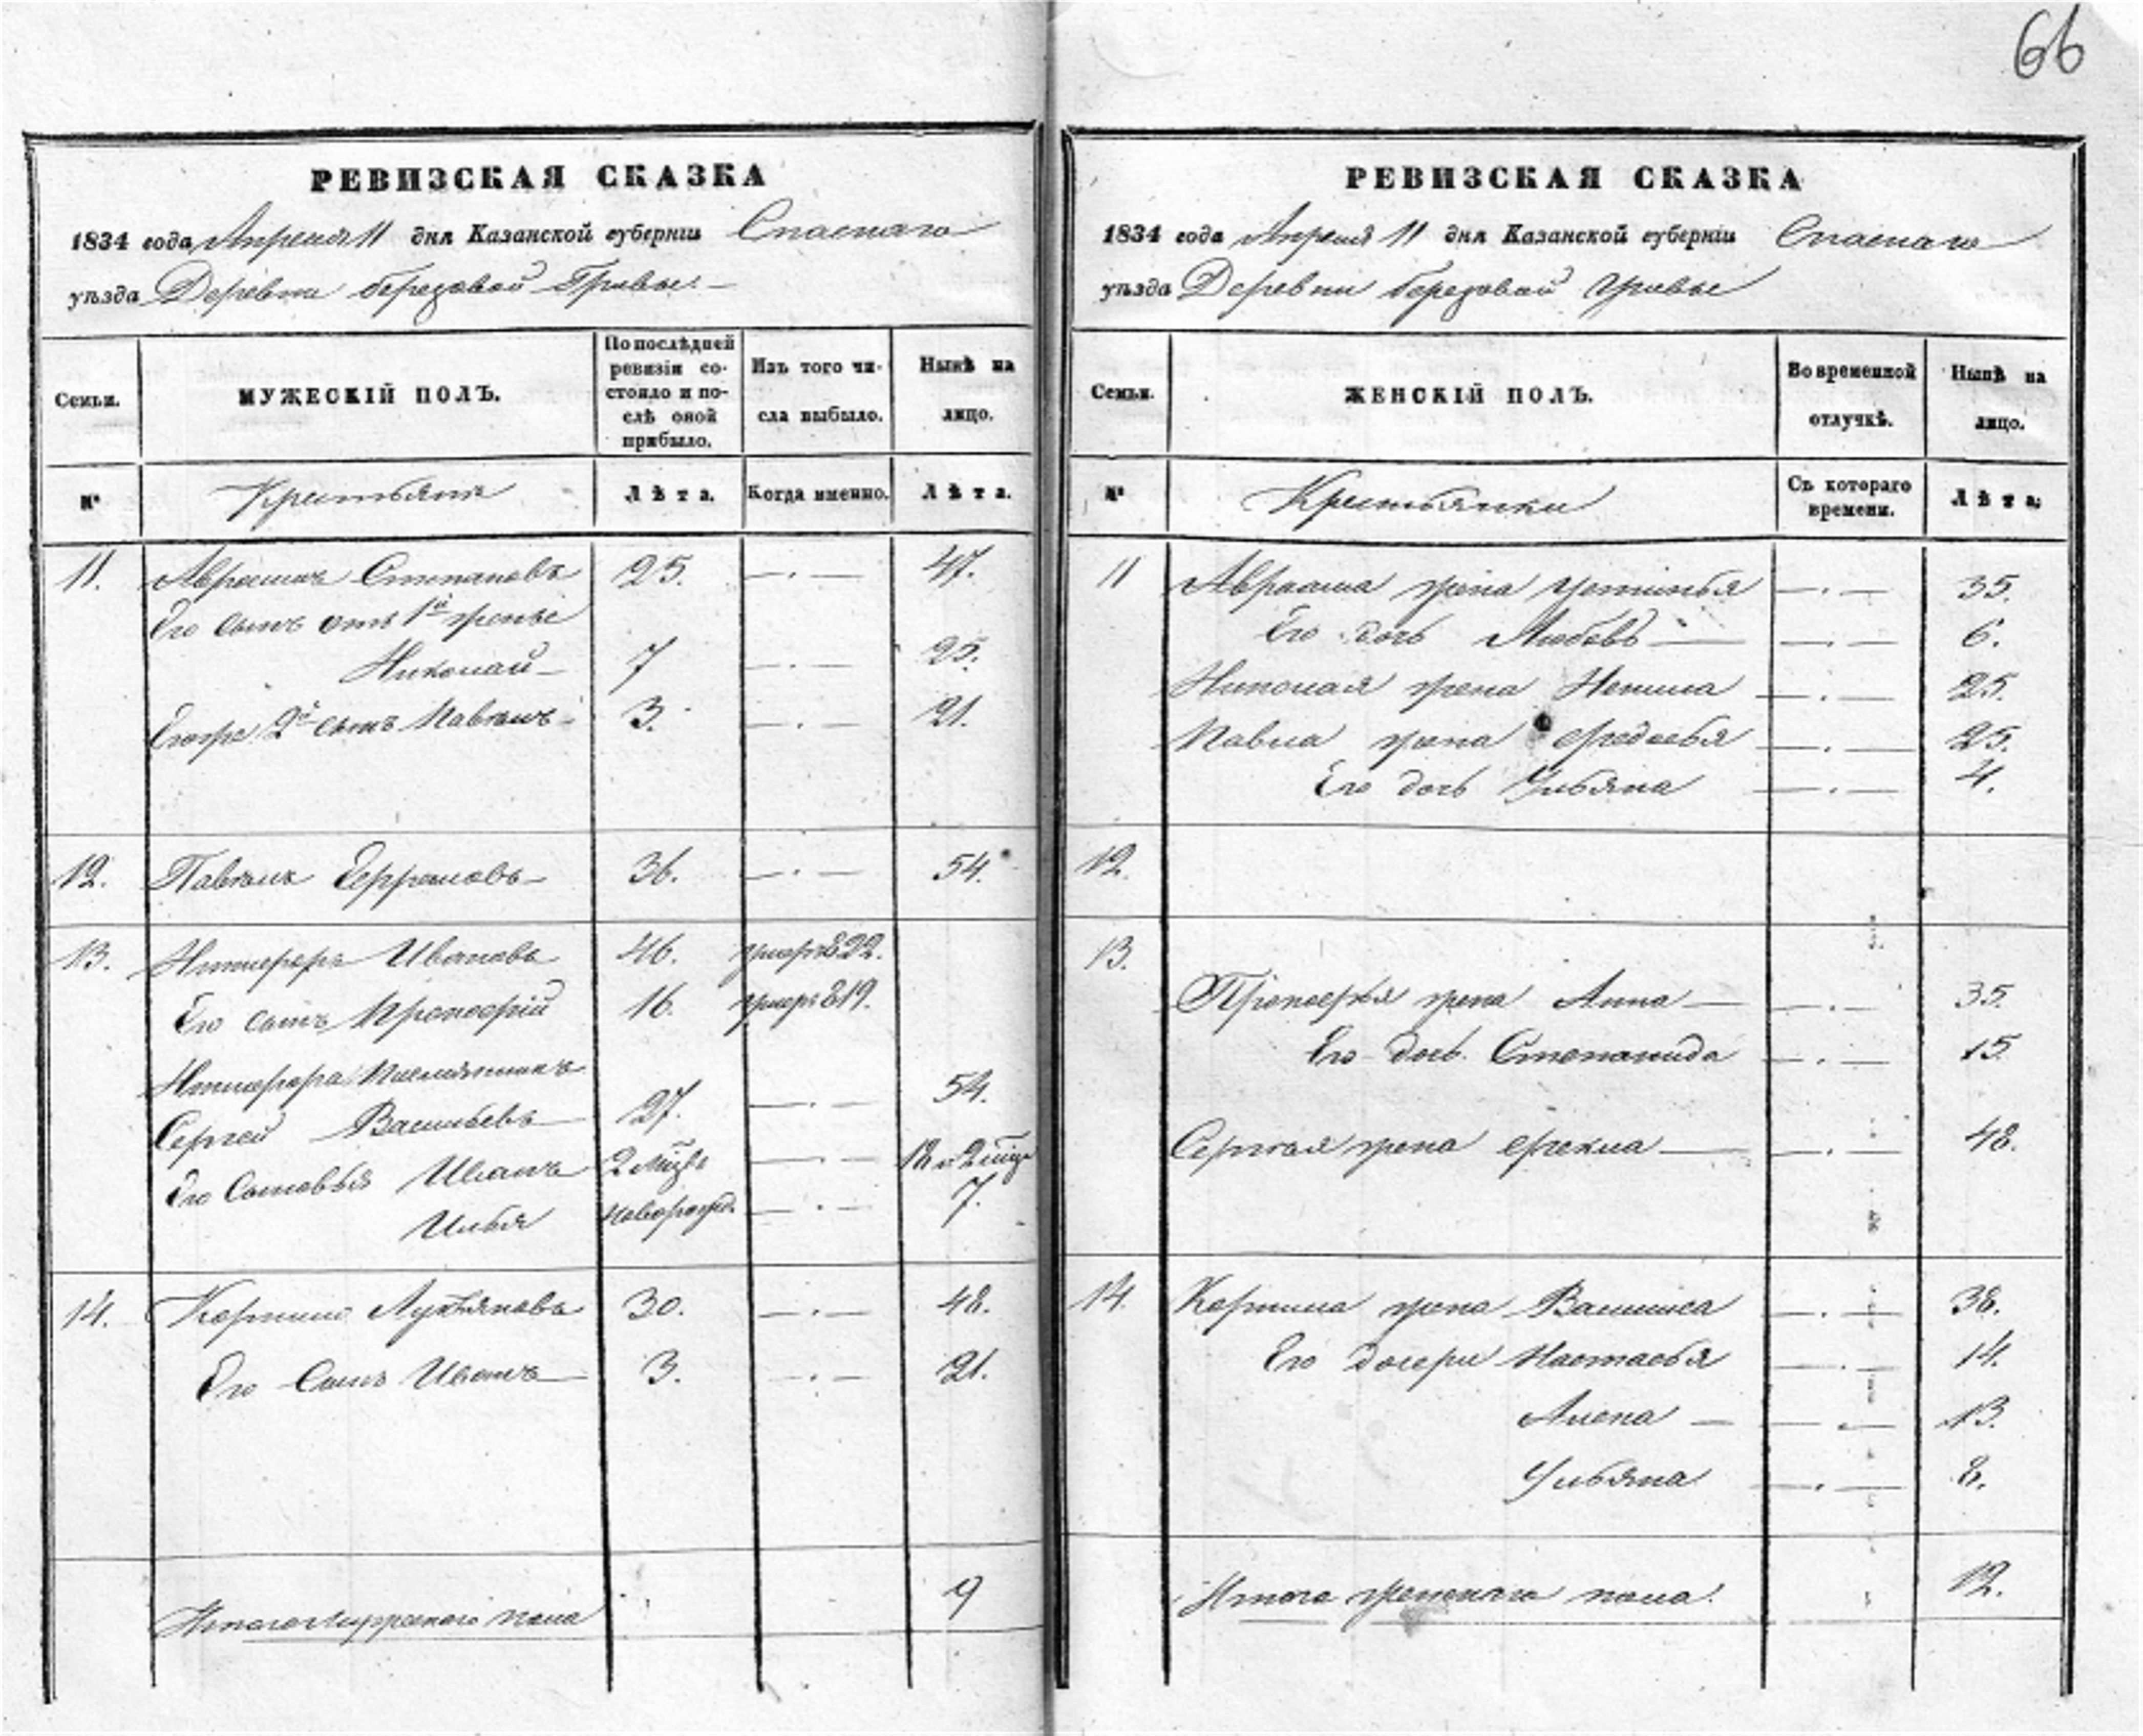 66
РЕВИЗСКАЯ СКАЗКА
1834 года Апреля 11 дня Казанской губернiи Спаскаго
уѣзда Деревни березовой Гривы.
Семьи.
МУЖЕСКIЙ ПОЛЪ.
По послѣдней ревизiи состояло и послѣ оной прибыло.
Изъ того числа выбыло.
Нынѣ на лицо.
№
Крестьянъ
Лѣта.
Когда именно.
Лѣта.
11. Авраамъ Степановъ 25. 47.
Его сынъ отъ 1й жены
Николай 7 25.
Егоже 2й сынъ Павелъ 3. 21.
12. Павелъ Ефремовъ 36. 54.
13. Никифоръ Ивановъ 46. умеръ 822.
Его сынъ Прокофiй 16. умеръ 819.
Никифора племянникъ
Сергей Васильевъ 27. 54.
Его Сыновья Иванъ 2 мцъ 18 и 2 мцъ
Илья новорожд. 7.
14. Корнило Лукьяновъ 30. 48.
Его Сынъ Иванъ 3. 21.
Итого мужескаго пола 9
РЕВИЗСКАЯ СКАЗКА
1834 года Апреля 11 дня Казанской губернiи Спаскаго
уѣзда Деревни березовой гривы
Семьи.
ЖЕНСКIЙ ПОЛЪ.
Во временной отлучкѣ.
Нынѣ на лицо.
№
Крестьянки
Съ котораго времени.
Лѣта.
11 Авраама жена Устинья 35.
Его дочь Любовь 6.
Николая жена Ненила 25.
Павла жена Федосья 25.
Его дочь Ульяна 4.
12.
13.
Прокофья жена Анна 35.
Его дочь Степанида 15
Сергея жена Фекла 48.
14. Корнила жена Василиса 38.
Его дочери Настасья 14.
Алена 13.
Ульяна 8.
Итого женскаго пола. 12.